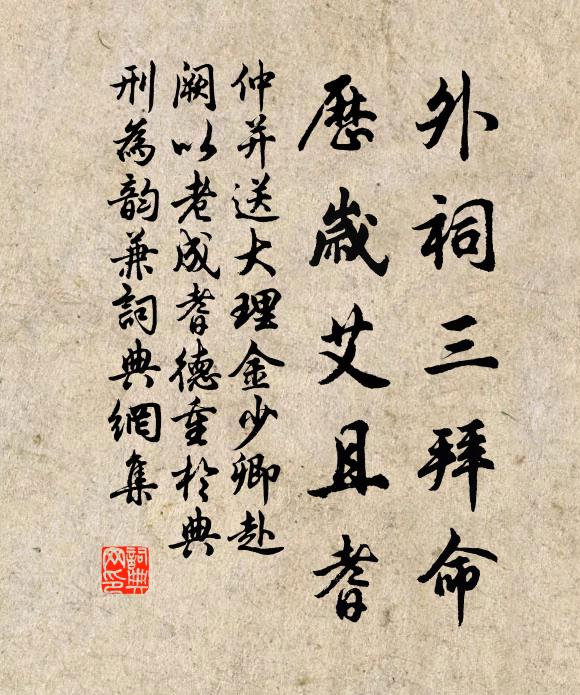 外祠三拜命
歷歲艾且耆
仲并送大理金少卿赴
阙以老成耆德重於典
刑為韵兼詞典網集
詞典網印